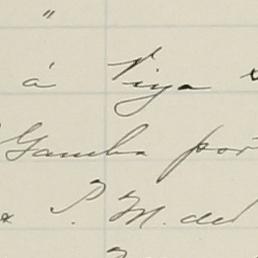 "
á Viga
Gamba por
P. M. del